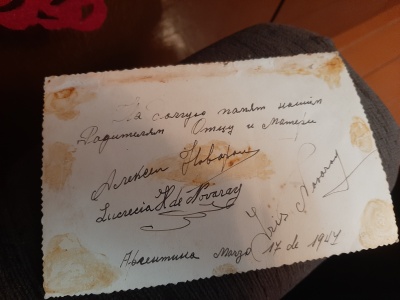 На долгую памят нашим
Радитилям Отцу и Матери
Алексей Новарай
Lucrecia H de Novaray
Iris Novaray
Аргентина Marzo 17 de 1947